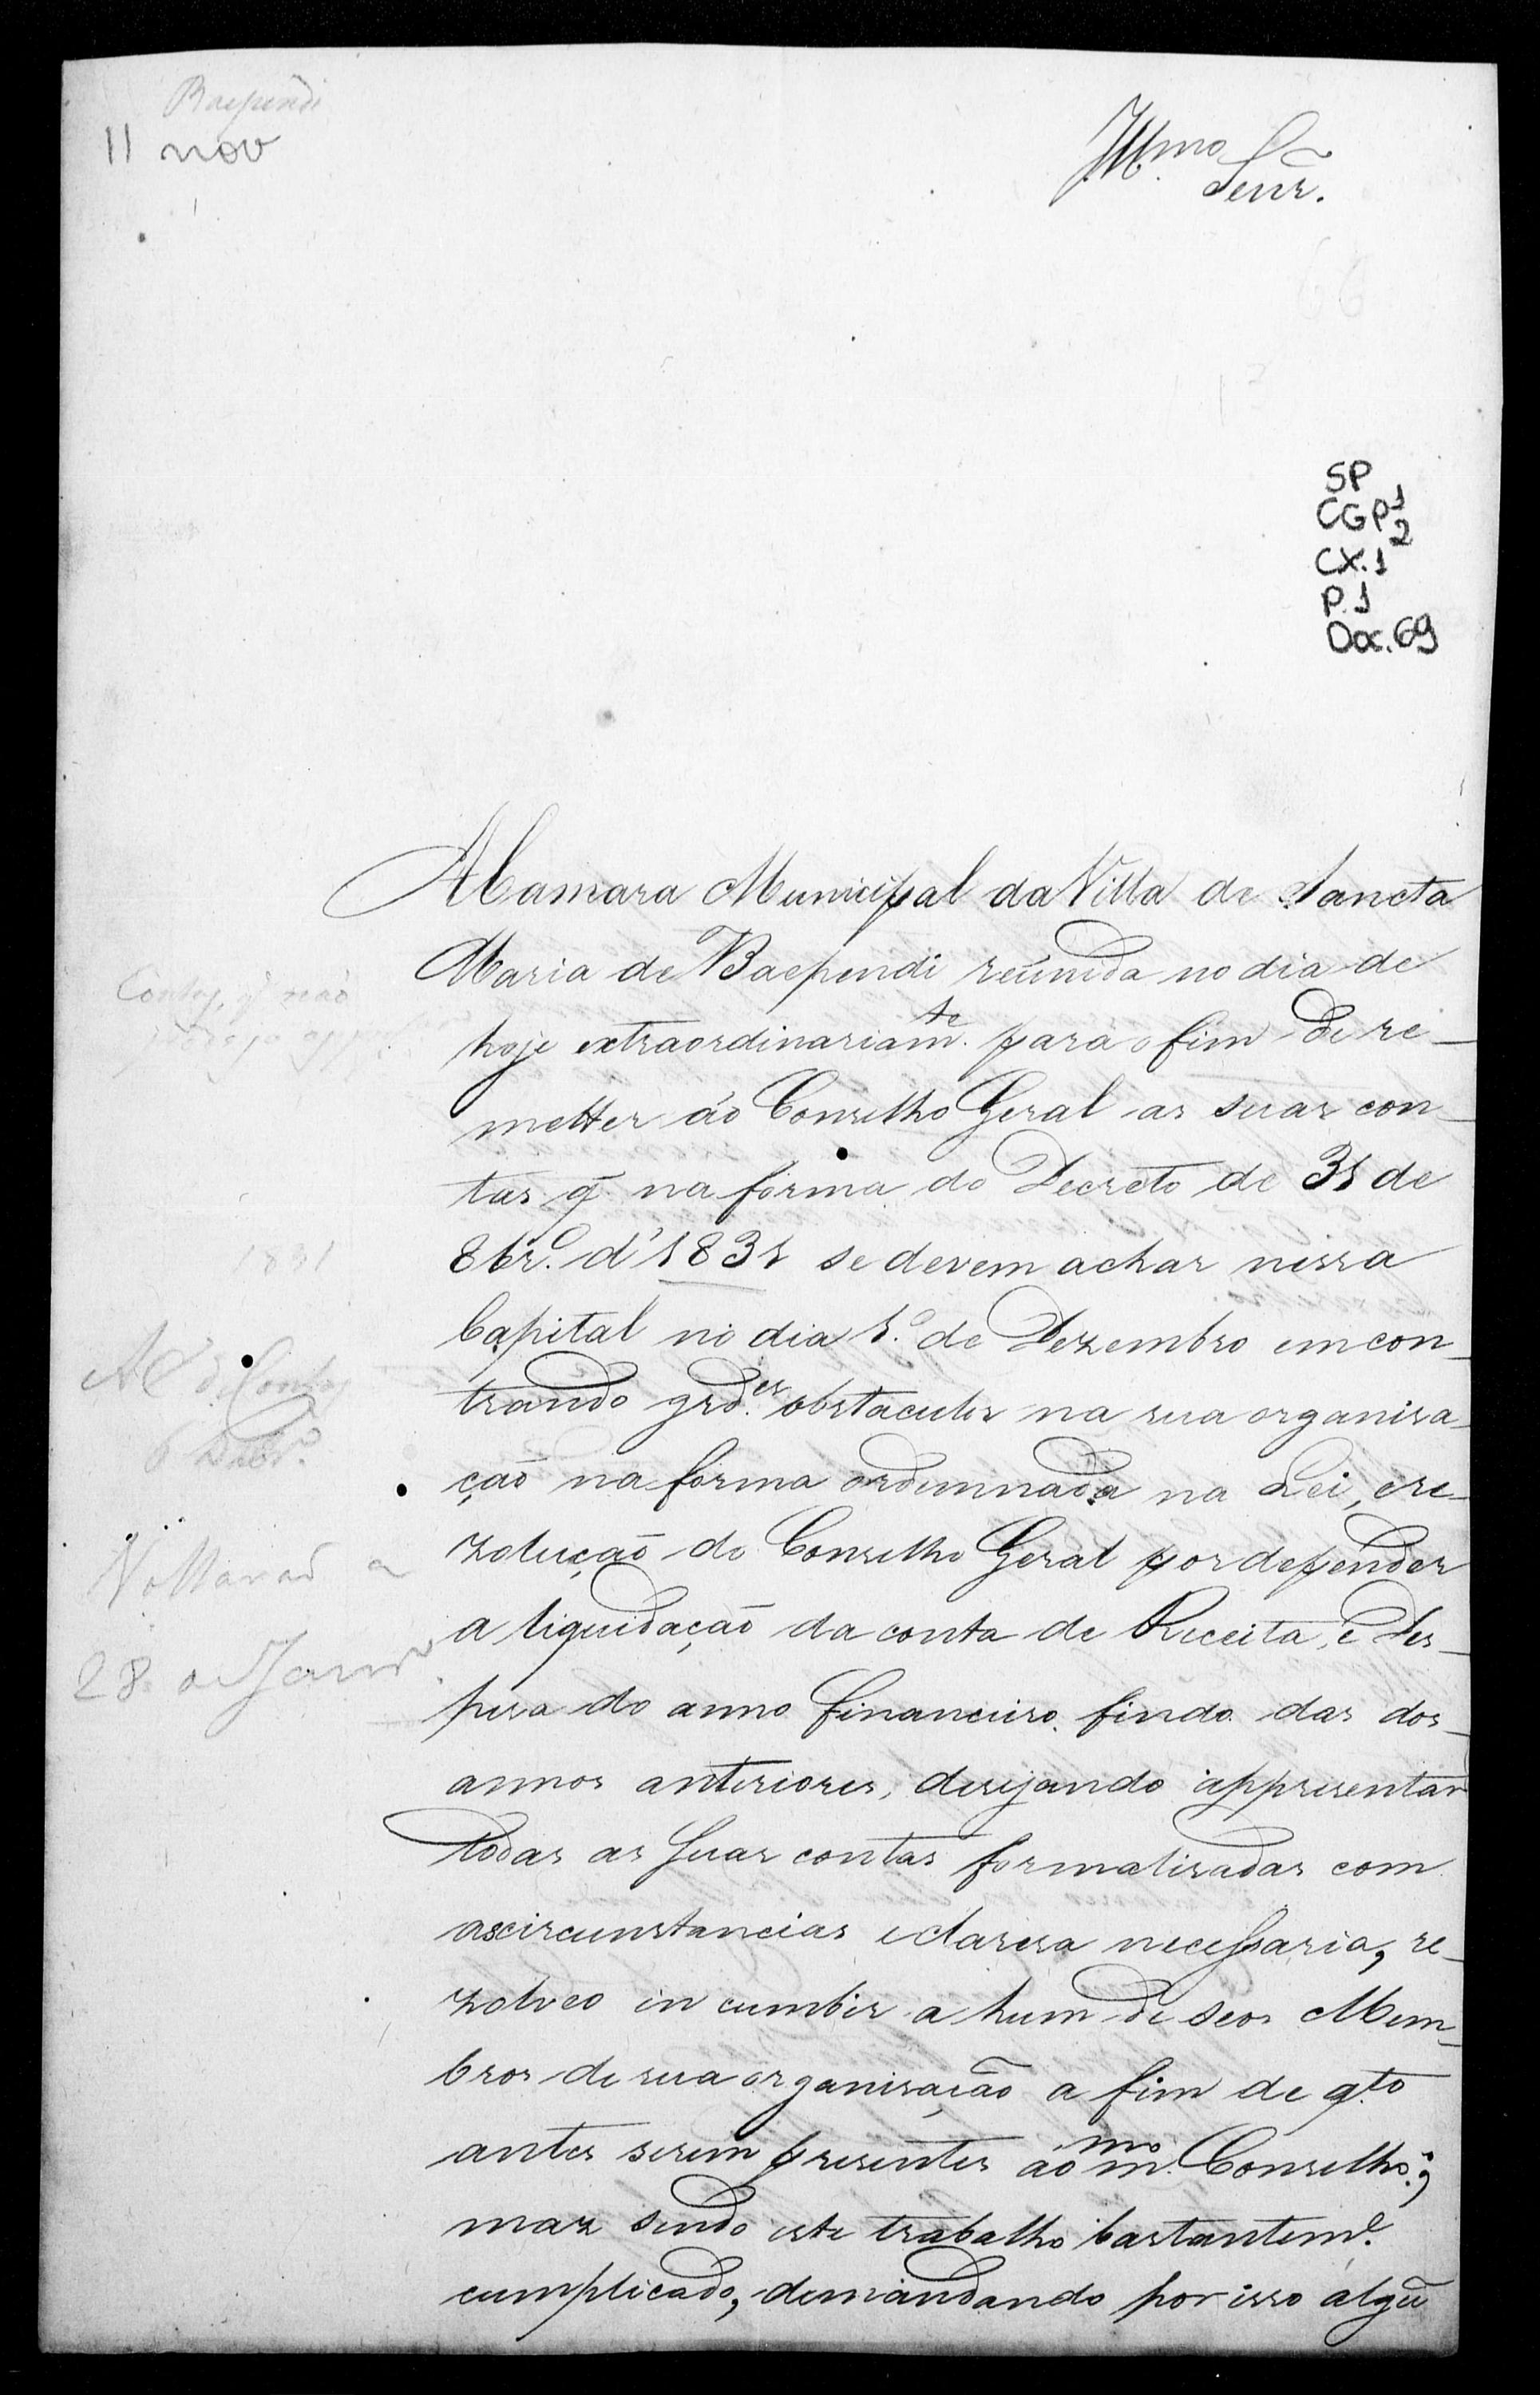 Baependi
11 nov
Ill.mo Senr.
SP
CGP1 2
CX.1
P.1
Doc.69
A Camara Municipal da Villa de Sancta
Maria de Baependi reúnida no dia de
hoje extraordinariam.te para o fim de re-
metter áo Conselho Geral as suas con-
tas q̃ na forma do Decreto de 31 de
8br.o d'1831 se devem achar nessa
Capital no dia 1.o de Dezembro emcon-
trando grd.es obstaculos na sua organisa-
ção na forma ordemnada na Lei, e re-
zolução do Conselho Geral por depender
a liquidação da conta de Receita, e Des-
pesa do anno financeiro findo das dos
annos anteriores, desejando appresentar
todas as suas contas formalisadas com
as circunstancias e claresa necessaria, re-
zolveo incumbir a hum de seos Mem-
bros de sua organisação a fim de q.to
antes serem presentes áo m.mo Conselho;
maz sendo este trabalho bastantem.e
cumplicado, demandando por isso algũ
Contas, q̃ não
1831
Á C. de Contas
6 Dezbr.o
Voltarão a
28 de Janr.o